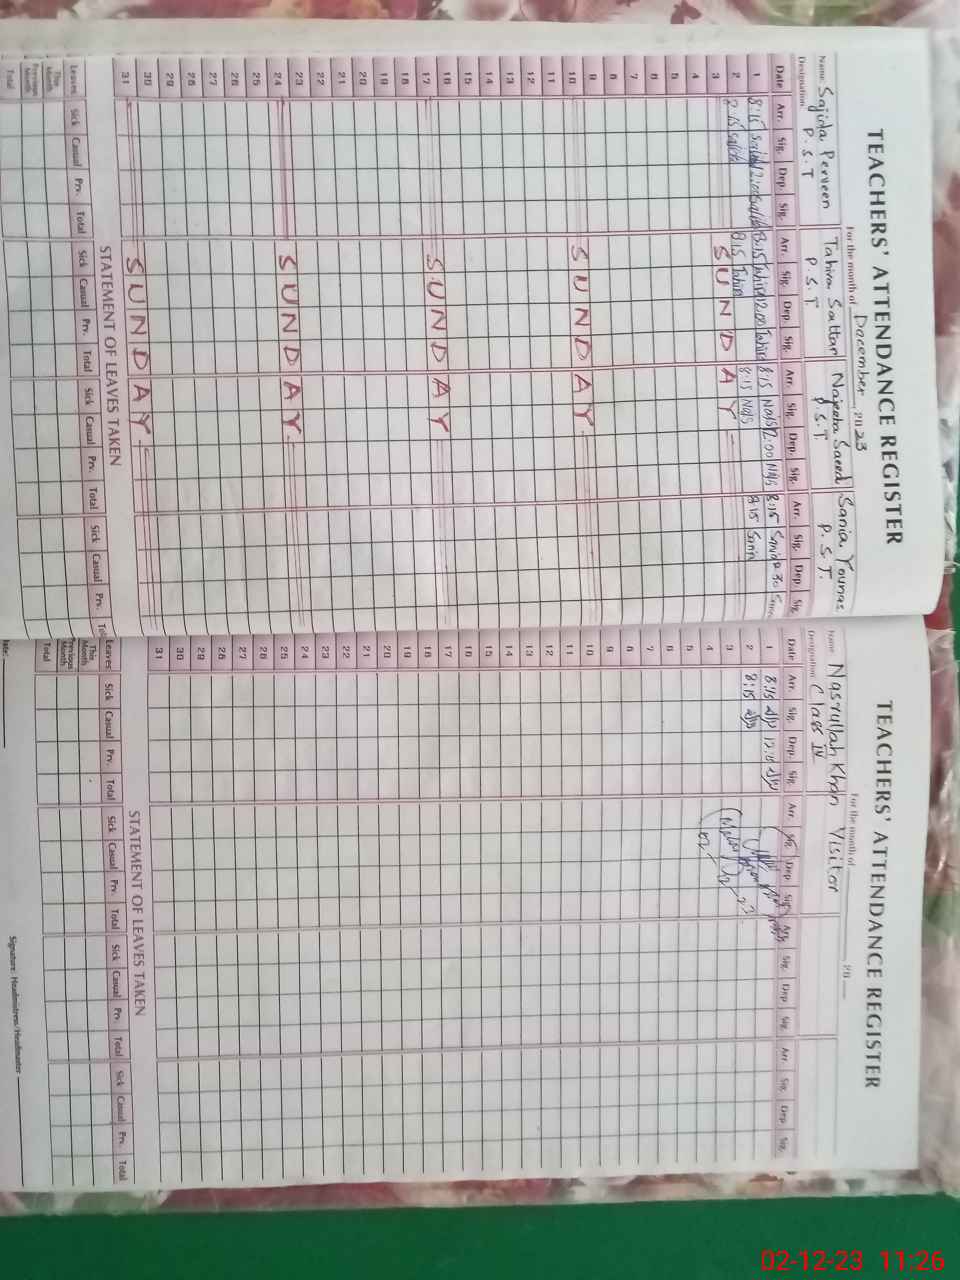 TEACHERS' ATTENDANCE REGISTER
For the month of December 2023
Name Sajida Perveen Tahira Sattar Najeeba Saeed Sania Younas
Designation P.S.T P.S.T. P.S.T. P.S.T.
Date Arr. Sig. Dep. Sig. Arr. Sig. Dep. Sig. Arr. Sig. Dep. Sig. Arr. Sig. Dep. Sig.
1 8:15 12:00 8:15 Tahira 12:00 Tahira 8:15 Najb 12:00 Najb 8:15 Sania
2 8:15 8:15 Tahira 8:15 Najb 8:15 Sania
3 SUNDAY
4
5
6
7
8
9
10 SUNDAY
11
12
13
14
15
16
17 SUNDAY
18
19
20
21
22
23
24 SUNDAY
25
26
27
28
29
30
31 SUNDAY
STATEMENT OF LEAVES TAKEN
Leaves Sick Casual Prv. Total Sick Casual Prv. Total Sick Casual Prv. Total Sick Casual Prv.
This Month
Previous Month
Total
TEACHERS' ATTENDANCE REGISTER
For the month of 20
Name Nasrullah Khan Visitor
Designation Class IV
Date Arr. Sig. Dep. Sig. Arr. Sig. Dep. Sig. Arr. Sig. Dep. Sig. Arr. Sig. Dep. Sig.
1 8:15
2 8:15
3
4
5
6
7
8
9
10
11
12
13
14
15
16
17
18
19
20
21
22
23
24
25
26
27
28
29
30
31
STATEMENT OF LEAVES TAKEN
Leaves Sick Casual Prv. Total Sick Casual Prv. Total Sick Casual Prv. Total Sick Casual Prv. Total
This Month
Previous Month
Total
Signature: Headmistress/Headmaster
02-12-23 11:26